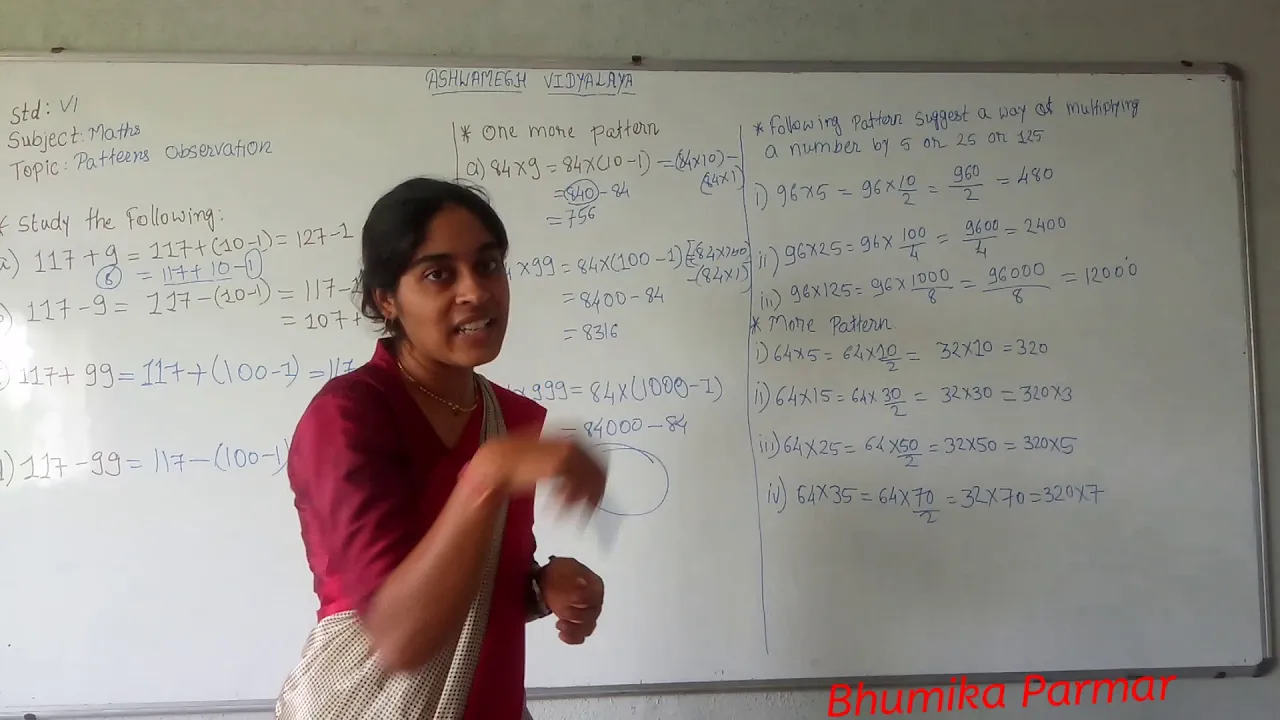 ASHWAMEGH VIDYALAYA
Std: VI
Subject: Maths
Topic: Patteens Observation
* Study the Following:
a) 117 + 9 = 117+(10-1) = 127-1
8 = 117+10-1
117 - 9 = 117-(10-1) = 117-1
= 107 +
117 + 99 = 117 + (100-1) = 117
d) 117 - 99 = 117 - (100-1)
* One more pattern
a) 84×9 = 84×(10-1) = (84×10) - (84×1)
= 840 - 84
= 756
×99 = 84×(100-1) [(84×100) - (84×1)]
= 8400 - 84
= 8316
×999 = 84×(1000-1)
= 84000 - 84
* Following Pattern suggest a way of multiplying
a number by 5 or 25 or 125
i) 96×5 = 96×10/2 = 960/2 = 480
ii) 96×25 = 96×100/4 = 9600/4 = 2400
iii) 96×125 = 96×1000/8 = 96000/8 = 12000
* More Pattern
i) 64×5 = 64×10/2 = 32×10 = 320
ii) 64×15 = 64×30/2 = 32×30 = 320×3
iii) 64×25 = 64×50/2 = 32×50 = 320×5
iv) 64×35 = 64×70/2 = 32×70 = 320×7
Bhumika Parmar